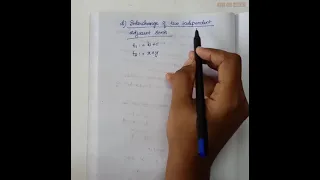 d) Interchange of two independent
adjacent stmts
t1 := b + c
t2 := x + y